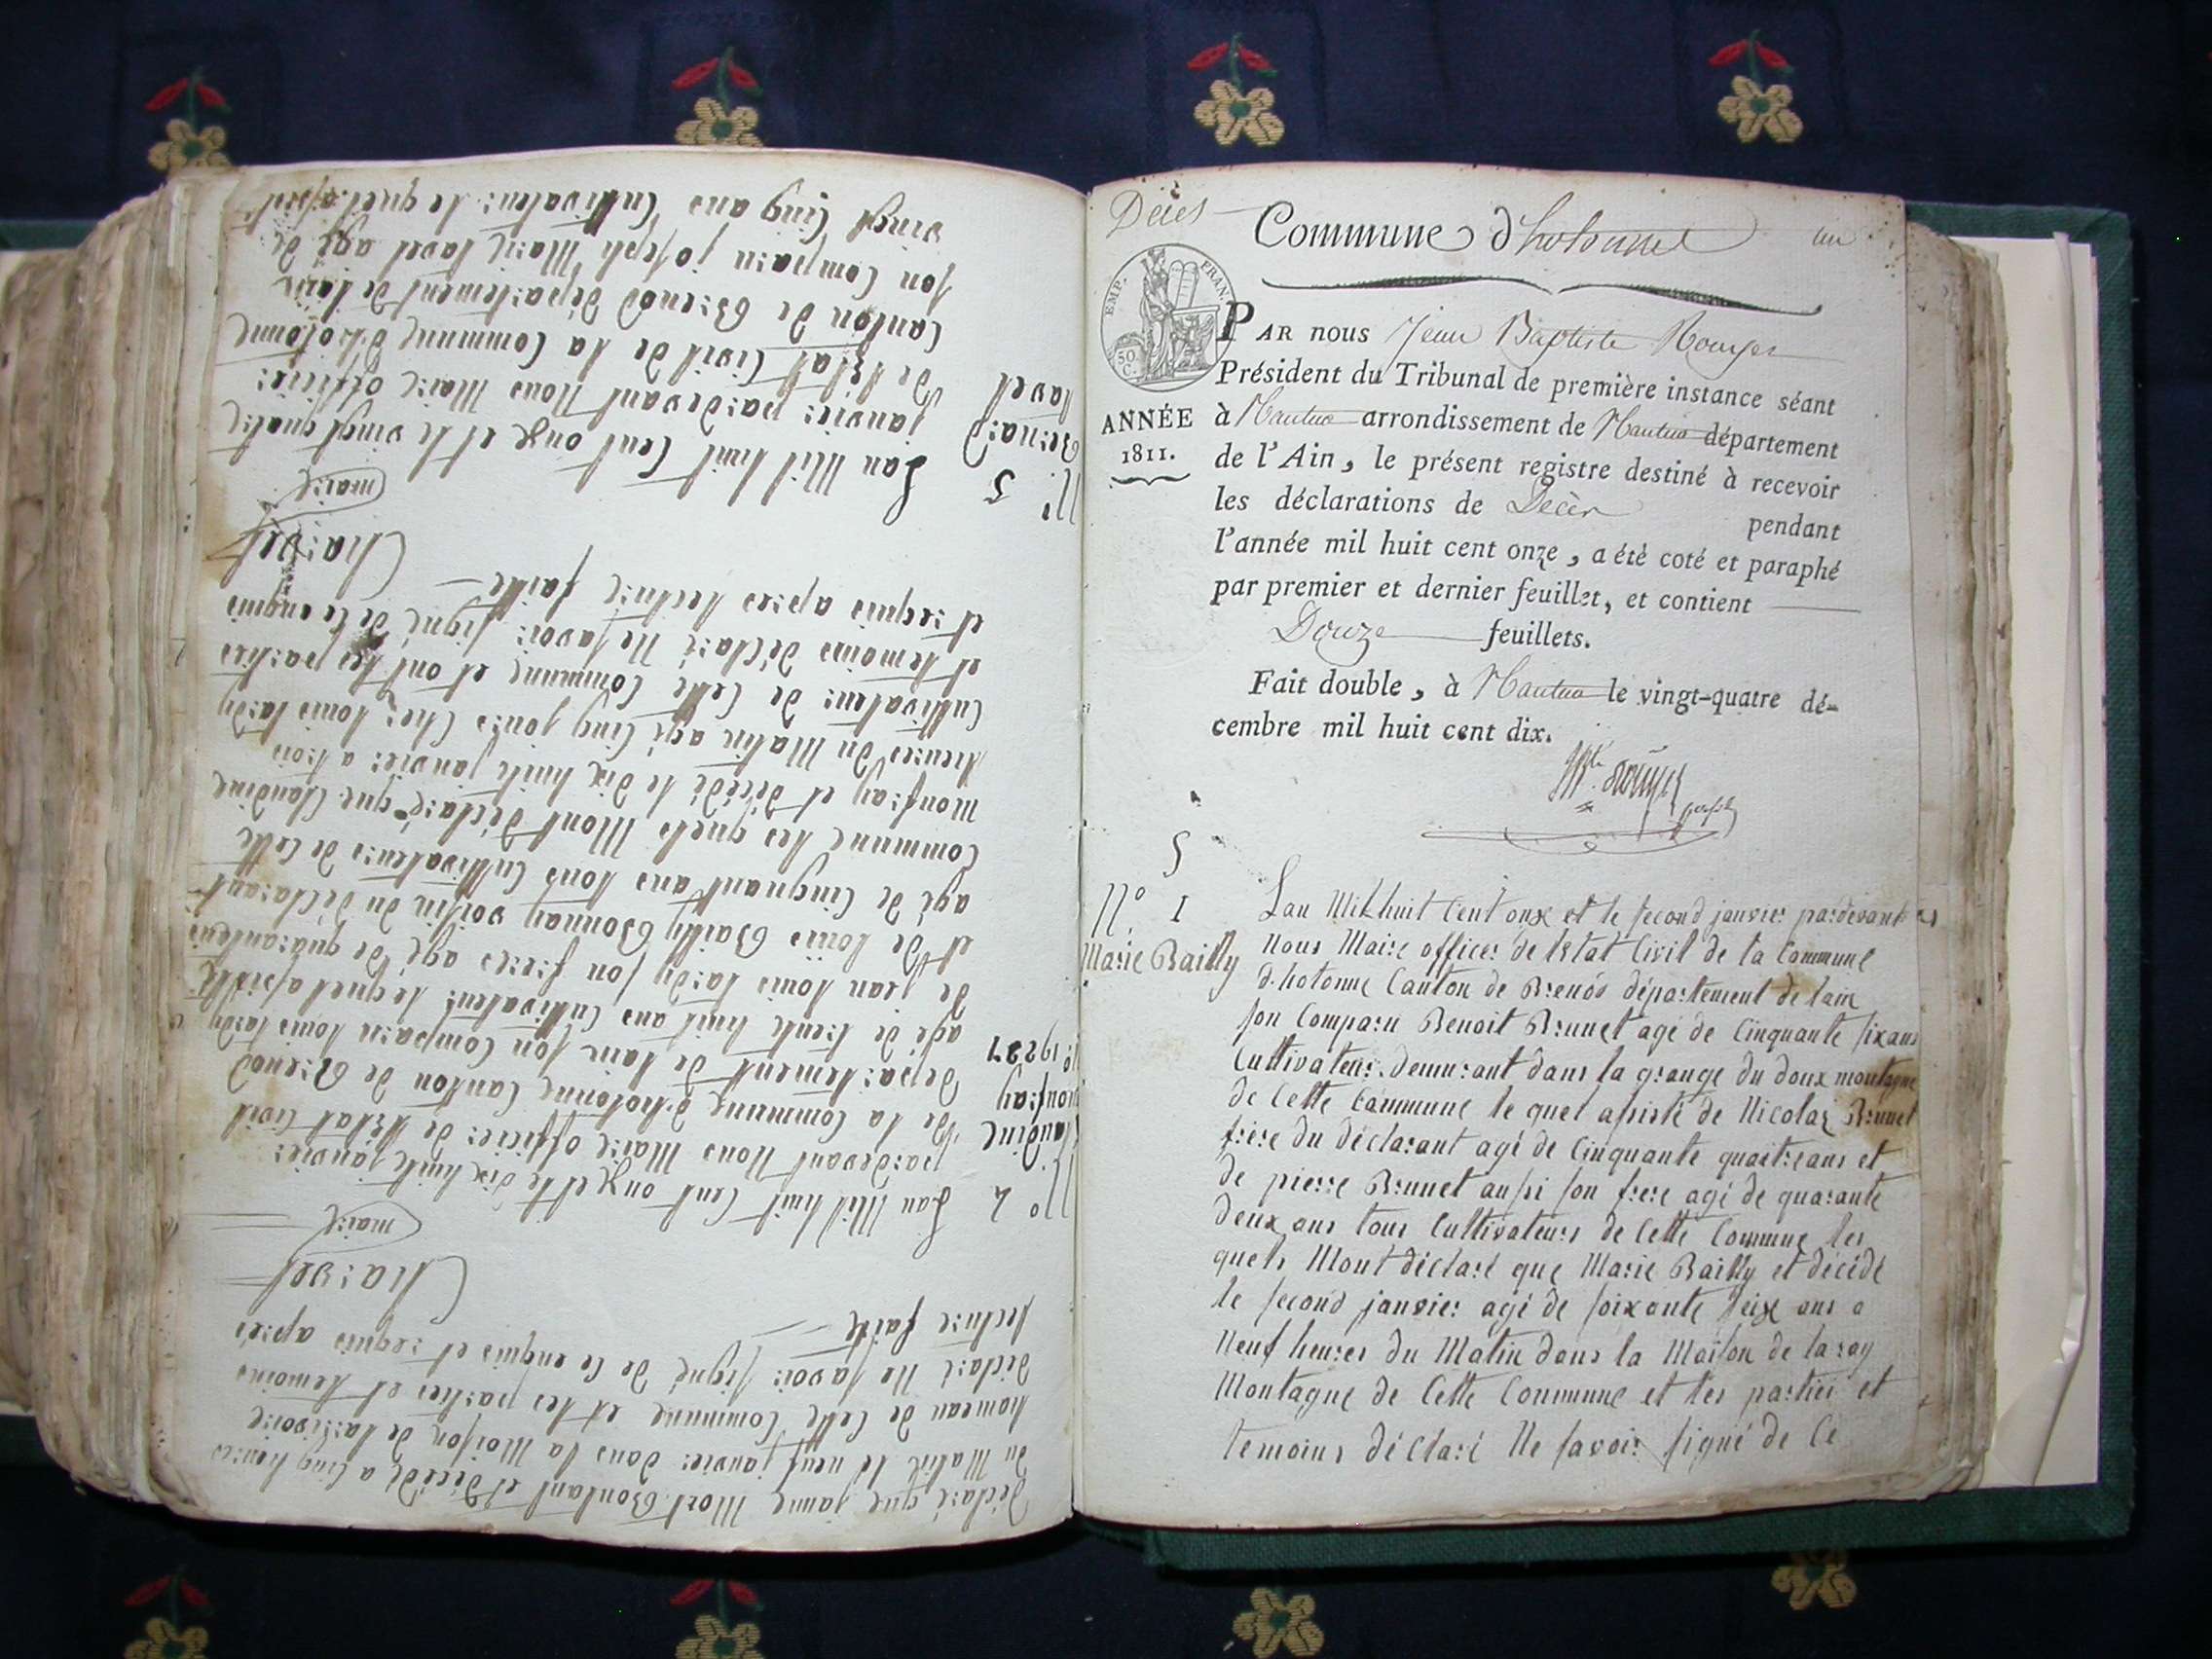 Décès
Commune d'hotonne
un
EMP. FRAN.
50 C.
ANNÉE
1811.
PAR nous Jean Baptiste Rouyer
Président du Tribunal de première instance séant
à Nantua arrondissement de Nantua département
de l'Ain, le présent registre destiné à recevoir
les déclarations de Décès pendant
l'année mil huit cent onze, a été coté et paraphé
par premier et dernier feuillet, et contient
Douze feuillets.
Fait double, à Nantua le vingt-quatre dé-
cembre mil huit cent dix.
N.º 1
Marie Bailly
Lan Mil huit Cent onze et le second janvier pardevant
nous Maire officer de letat Civil de la Commune
d.hotonne Canton de Brenod département de lain
son Comparu Benoit Brunet agé de Cinquante six ans
Cultivateur demurant dans la grange du doux montagne
de Cette Commune le quel asisté de Nicolas Brunet
frère du déclarant agé de Cinquante quaitre ans et
de pierre Brunet aussi son frere agé de quarante
deux ans tous Cultivateurs de Cette Commune les
quels Mont déclaré que Marie Bailly et décédé
le second janvier agé de soixante seize ans a
Neuf heures du Matin dans la Maison de laray
Montagne de Cette Commune et les parties et
temoins déclaré Ne savoir signé de Ce
déclaré que janne Mort Goutant et décédé a Cinq heures
du Matin le neuf janvier dans la Maison de larivoire
hameau de Cette Commune et les parties et temoins
déclaré Ne savoir signé de Ce enquis et requis après
lecture faitte
Charvet
maire
N.º 4
Claudine
monfray
Lan Mil huit Cent onze et le dix huite janvier
pardevant Nous Maire officier de letat Civil
de la Commune d'hotonne Canton de Brenod
departement de lain son Comparu louis tardy
agé de trente huit ans Cultivateur le quel asisté
de jean louis tardy son freres agé de quarante
et de louis Bailly Bonnay voisin du déclarant
agé de Cinquant ans tous Cultivateurs de Cette
Commune les quels Mont déclaré que Claudine
monfray et décédé le dix huite janvier a trois
heures du Matin agé Cinq jours Chez louis tardy
Cultivateur de Cette Commune et ont les parties
et temoins déclaré Ne savoir signé de Ce enquis
et requis apres lecture faitte
Charvet
maire
N.º 5
Bernard
tavel
Lan Mil huit Cent onze et le vingt quatre
janvier pardevant Nous Maire officier
de letat Civil de la Commune d'hotonne
Canton de Brenod département de lain
son Comparu joseph Marie tavel agé de
vingt Cinq ans Cultivateur le quel asisté